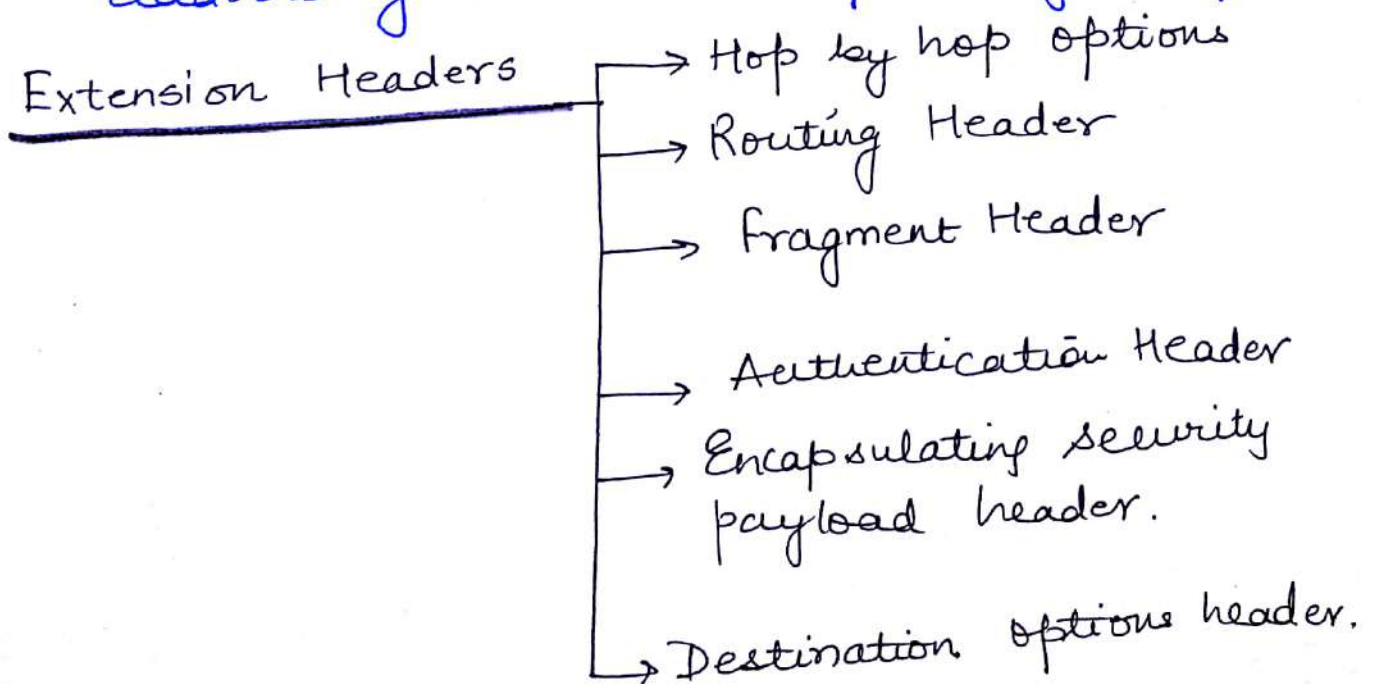 Extension Headers
Hop by hop options
Routing Header
Fragment Header
Authentication Header
Encapsulating security
payload header.
Destination options header.